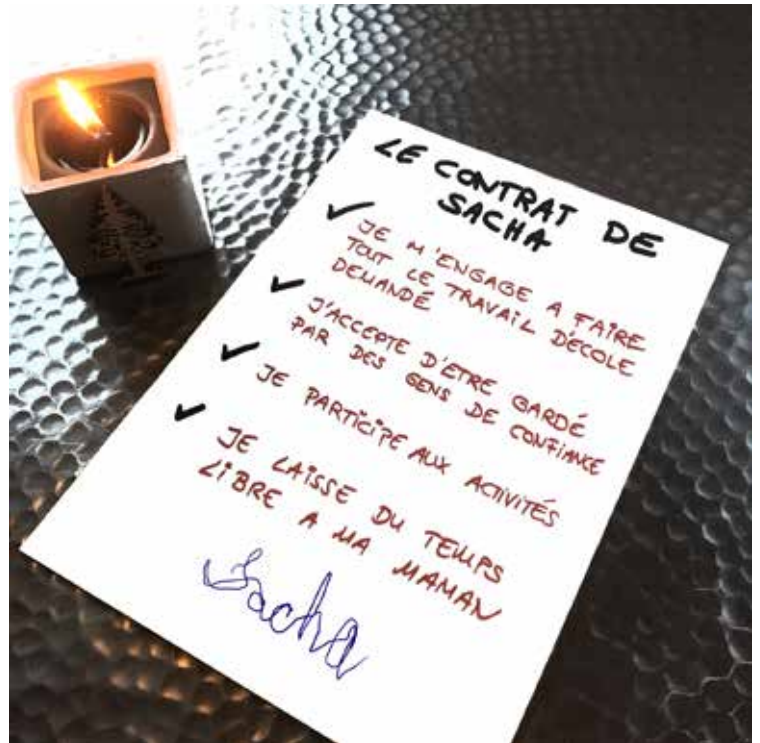 LE CONTRAT DE
SACHA
✓ JE M'ENGAGE A FAIRE
TOUT LE TRAVAIL D'ÉCOLE
DEMANDÉ
✓ J'ACCEPTE D'ETRE GARDÉ
PAR DES GENS DE CONFIANCE
✓ JE PARTICIPE AUX ACTIVITÉS
✓ JE LAISSE DU TEMPS
LIBRE A MA MAMAN
Sacha